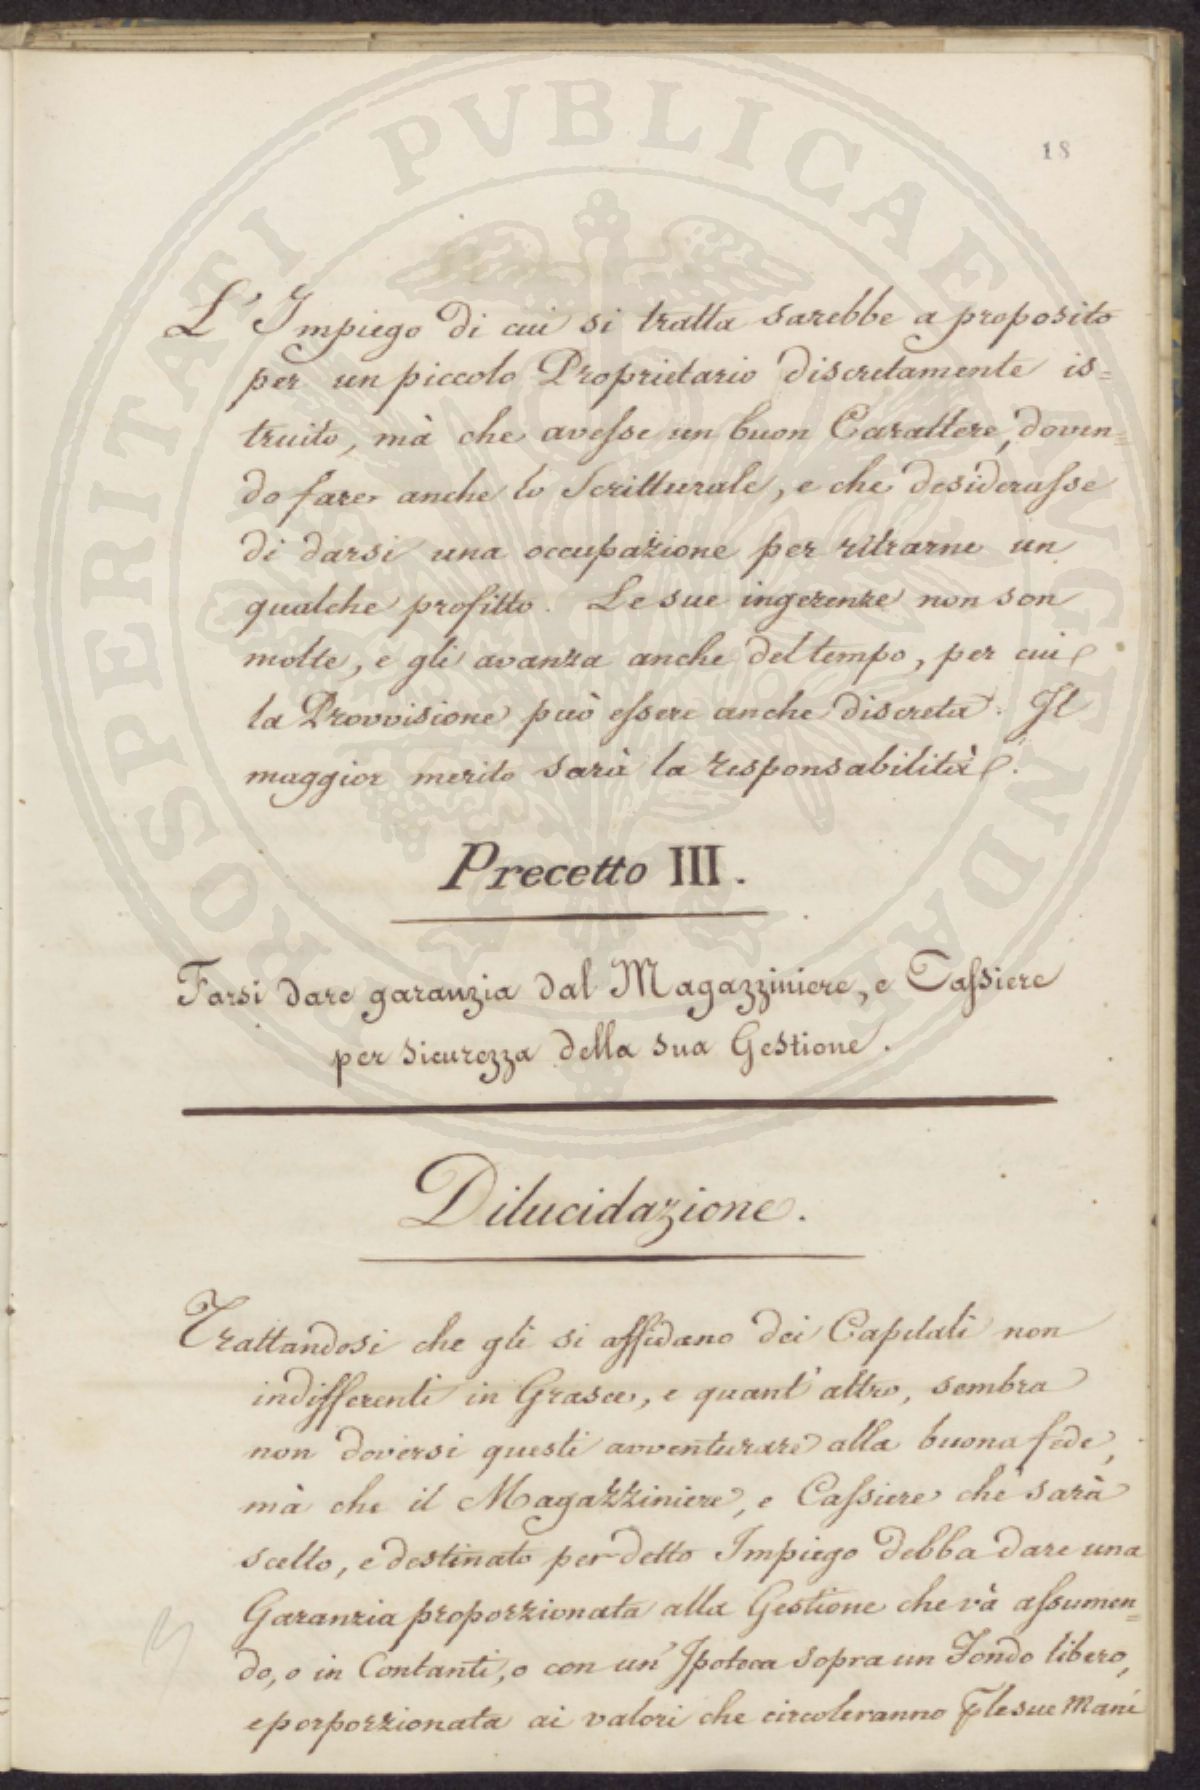 18
L'Impiego di cui si tratta sarebbe a proposito
per un piccolo Proprietario discretamente is=
truito, mà che avesse un buon Carattere, doven=
do fare anche lo Scritturale, e che desiderasse
di darsi una occupazione per ritrarne un
qualche profitto. Le sue ingerenze non son
molte, e gli avanza anche del tempo, per cui
la Provvisione può essere anche discreta. Il
maggior merito sarà la responsabilità.
Precetto III.
Farsi dare garanzia dal Magazziniere, e Cassiere
per sicurezza della sua Gestione.
Dilucidazione.
Trattandosi che gli si affidano dei Capitali non
indifferenti in Grasce, e quant'altro, sembra
non doversi questi avventurare alla buona fede,
mà che il Magazziniere, e Cassiere che sarà
scelto, e destinato per detto Impiego debba dare una
Garanzia proporzionata alla Gestione che và assumen=
do, o in Contanti, o con un'Ipoteca sopra un Fondo libero,
e porporzionata ai valori che circoleranno le sue Mani
PROSPERITATI PVBLICAE AVGENDAE